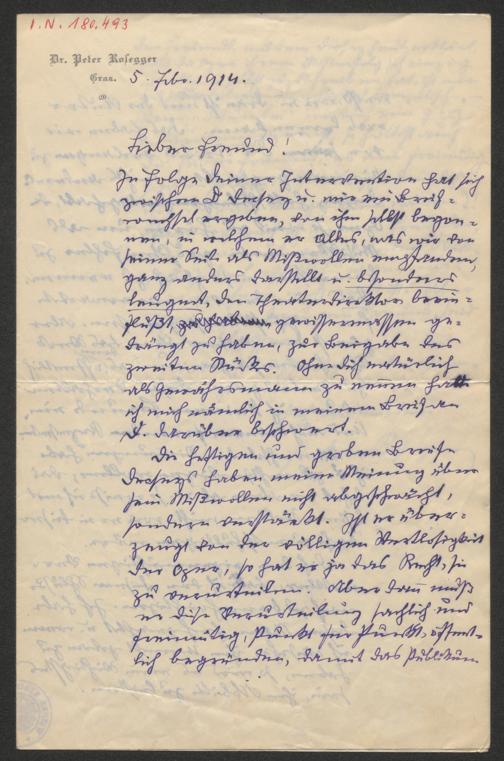 I.N. 180.493
Dr. Peter Rosegger
Graz. 5. Febr. 1914.
Lieber Freund!
In Folge deiner Intervention hat sich
zwischen D Decsey u. mir ein Brief-
wechsel ergeben, von ihm selbst begon-
nen, in welchem er Alles, was wir von
seiner Seite als Mißwollen empfanden,
ganz anders darstellt u. besonders
leugnet, den Theaterdirektor beein-
flußt, gewissermassen ge-
drängt zu haben, zur Beigabe des
zweiten Stückes. Ohne dich natürlich
als Gewährsmann zu nennen hatte
ich mich nämlich in meinem Brief an
D. darüber beschwert.
Die heftigen und groben Briefe
Decseys haben meine Meinung über
sein Mißwollen nicht abgeschwächt,
sondern verstärkt. Ist er über-
zeugt von der völligen Wertlosigkeit
der Oper, so hat er ja das Recht, sie
zu verurteilen. Aber dann muß
er diese Verurteilung sachlich und
freimütig, Punkt für Punkt, öffent-
lich begründen, damit das Publikum